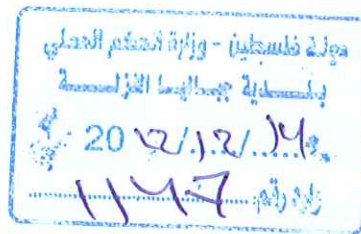 دولة فلسطين - وزارة الحكم المحلي
بلدية جباليا النزلة
20 /12/14
رقم 1147